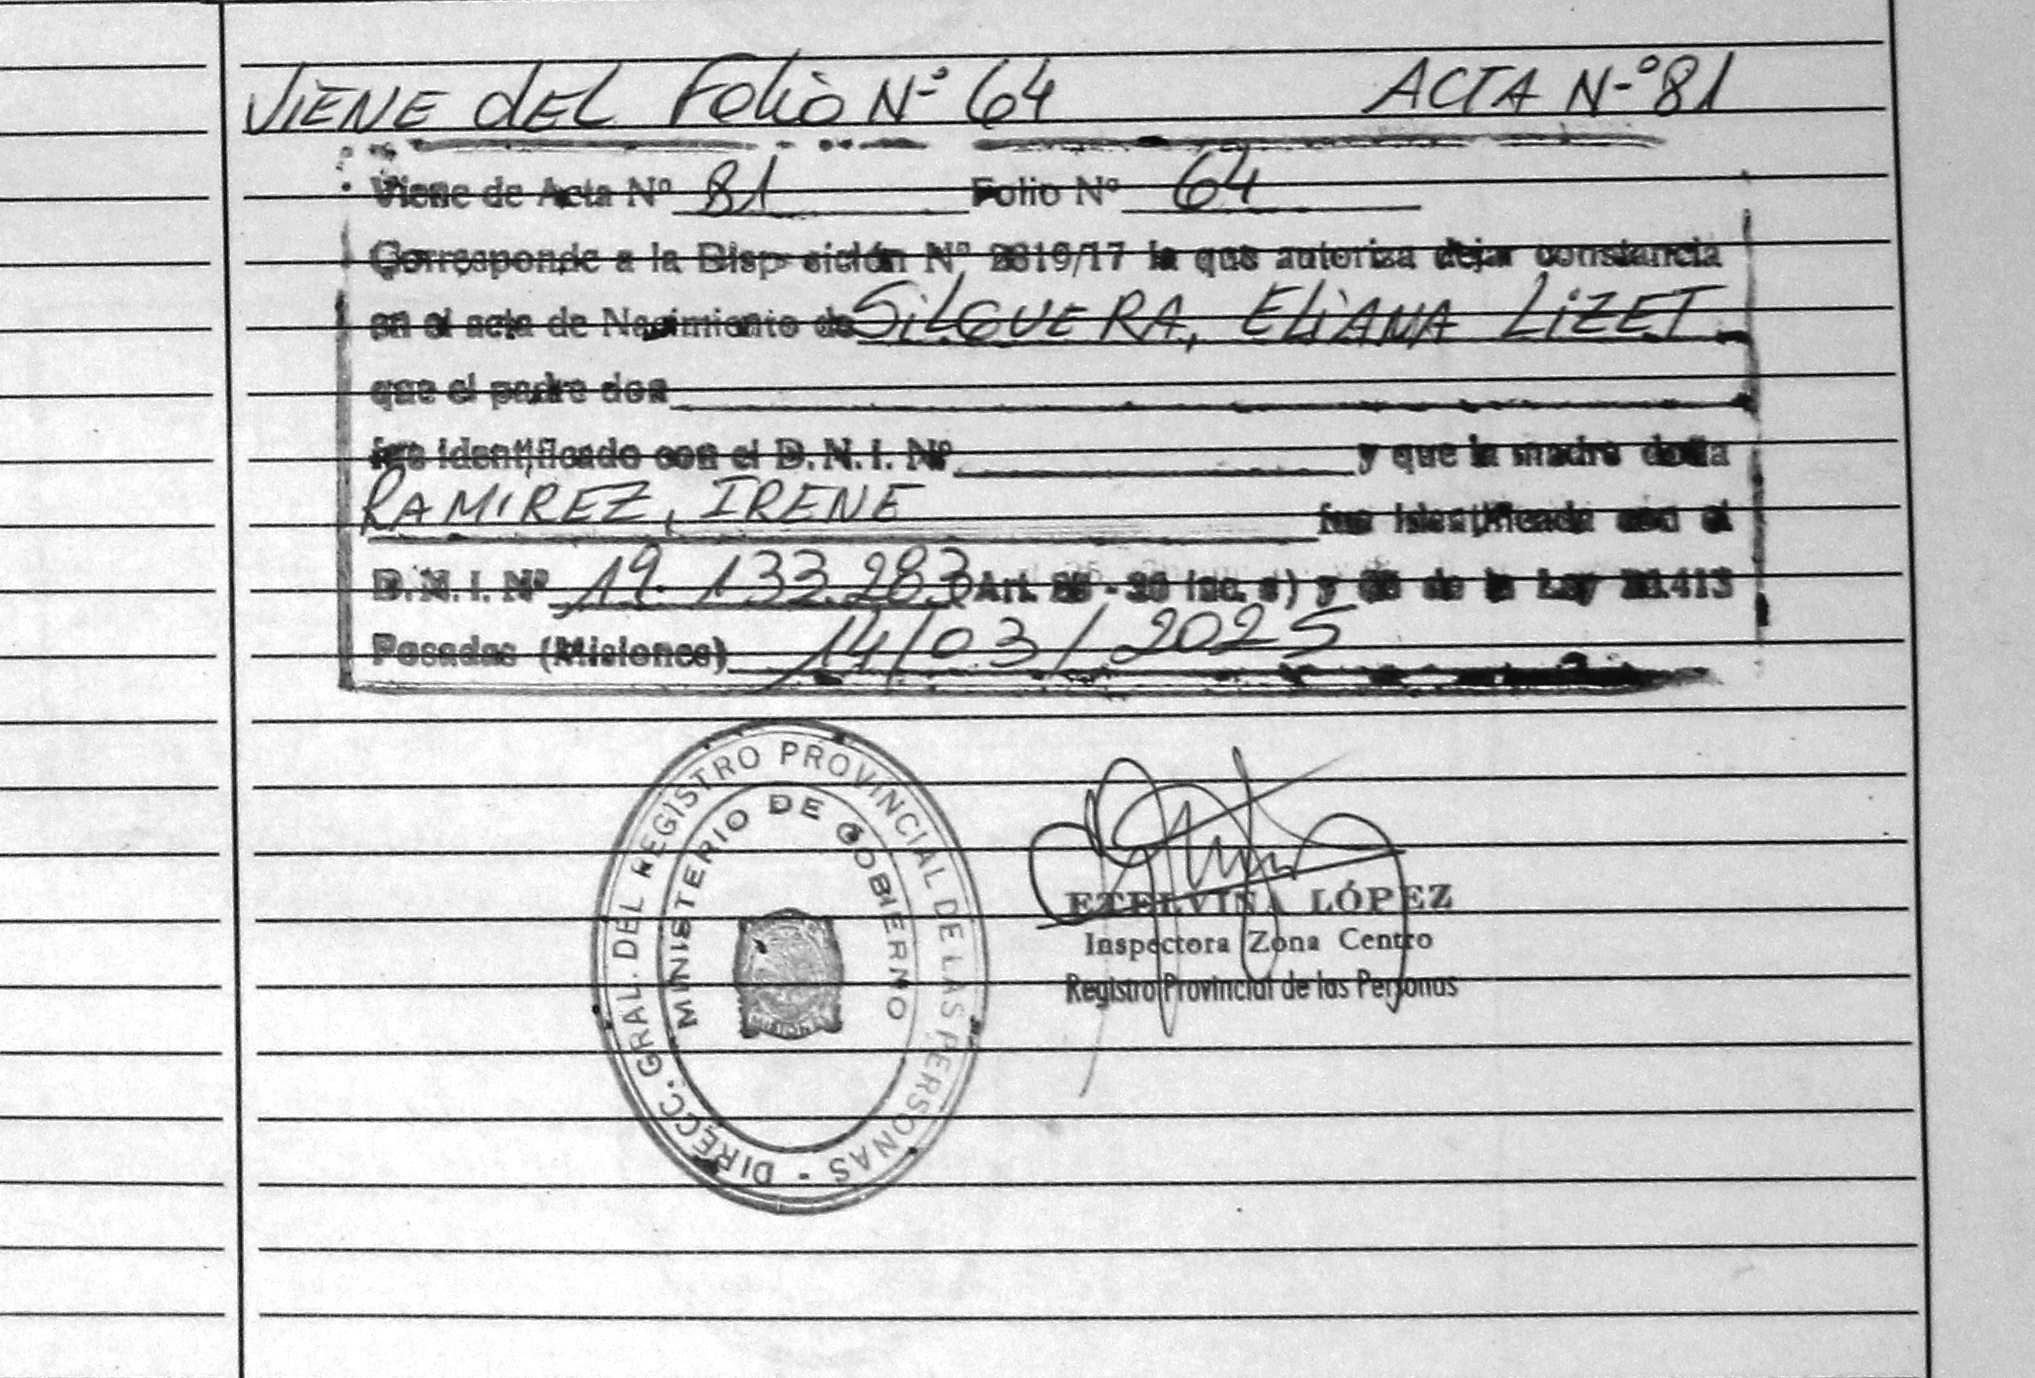 VIENE DEL FOLIO Nº 64 ACTA Nº 81
Viene de Acta Nº 81 Folio Nº 64
Corresponde a la Disposición Nº 2819/17 la que autoriza dejar constancia
en el acta de Nacimiento de SILGUERA, ELIANA LIZET
que el padre don
fue identificado con el D.N.I. Nº y que la madre doña
RAMIREZ, IRENE fue identificada con el
D.N.I. Nº 19.133.283 (Art. Inc. e) y de la Ley
Posadas (Misiones) 14/03/2025
DIRECC. GRAL. DEL REGISTRO PROVINCIAL DE LAS PERSONAS -
MINISTERIO DE GOBIERNO
MISIONES
ETELVINA LÓPEZ
Inspectora Zona Centro
Registro Provincial de las Personas